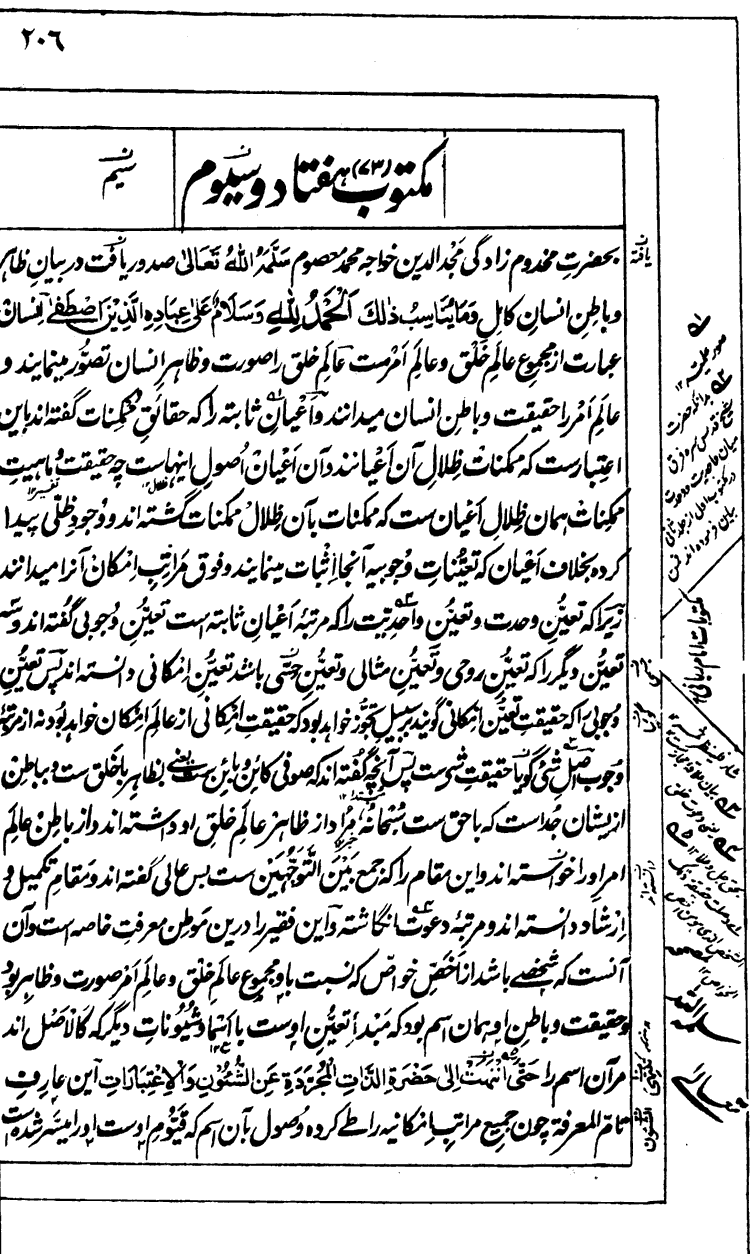 ٢٠٦
مکتوب (٧٣) هفتاد و سیوم
بحضرتِ مخدوم زادگی مجد الدین خواجه محمد معصوم سَلَّمَهُ اللهُ تَعَالیٰ صدور یافت در بیانِ ظاهر
و باطنِ انسانِ کامل وَمَا یُنَاسِبُ ذٰلِكَ اَلْحَمْدُ لِلّٰهِ وَسَلَامٌ عَلیٰ عِبَادِهِ الَّذِیْنَ اصْطَفیٰ اِنسان
عبارت از مجموعِ عالمِ خَلْق و عالمِ اَمْرست عالمِ خلق را صورت و ظاهرِ اِنسان تصوّر مینمایند و
عالمِ اَمْر را حقیقت و باطنِ انسان میدانند و اَعْیانِ ثابته را که حقائقِ مُمْکِنات گفته اند باین
اعتبارست که ممکنات ظِلالِ آن اَعْیانند و آن اَعْیان اُصولِ اینهاست چه حقیقت و ماهیتِ
ممکنات همان ظِلالِ اَعْیان ست که ممکنات بآن ظِلال ممکنات گشته اند و وجودِ ظلّی پیدا
کرده بخلافِ اَعْیان که تعیُّناتِ وُجوبیه آنجا اِثبات مینمایند و فوقِ مَراتبِ اِمْکان آنرا میدانند
زیرا که تعیُّنِ وحدت و تعیُّنِ واحدیّت را که مرتبۀ اَعْیانِ ثابته است تعیُّنِ وُجوبی گفته اند و سه
تعیُّن دیگر را که تعیُّنِ روحی و تعیُّنِ مثالی و تعیُّنِ جسدی باشد تعیُّنِ اِمْکانی دانسته اند پس تعیُّنِ
وجوبی را که حقیقتِ تعیُّنِ اِمْکانی گویند بر سبیلِ تجوُّز خواهد بود که حقیقتِ اِمْکانی از عالمِ اِمْکان خواهد بود نه از مرتبۀ
وُجوب اصلِ شئی گویا حقیقتِ شی ست پس آنچه گفته اند که صوفی کائن و بائن ست یعنی بظاهر با خلق ست و بباطن
از یشان جُداست که با حق ست سُبْحَانَهٗ مُراد از ظاهر عالمِ خلقِ او داشته اند و از باطن عالمِ
امرِ او را خواسته اند و این مقام را که جمع بَیْنَ التَّوَجُّهَیْن ست بس عالی گفته اند و مقامِ تکمیل و
اِرْشاد دانسته اند و مرتبۀ دعوت انگاشته و این فقیر را درین مَوطن معرفتِ خاصه است و آن
آنست که شخصے باشد از اَخَصِّ خواصّ که نسبت باو مجموعِ عالمِ خلق و عالمِ اَمْر صورت و ظاهر بود
و حقیقت و باطنِ او همان اسم بود که مَبْدأ تعیُّنِ اوست با اَسْمَا و شُیُوناتِ دیگر که کَالْاَصْل اند
مرآن اسم را حَتّٰی انْتَهَتْ اِلیٰ حَضْرَةِ الذَّاتِ الْمُجَرَّدَةِ عَنِ الشُّئُوْنِ وَالْاِعْتِبَارَاتِ این عارفِ
تامّ المعرفة چون جمیع مراتبِ اِمْکانیه را طے کرده وُصول بآن اسم که قیّومِ اوست او را میسر شده است
یافته
مکتوبات امام ربانی
سلمه الله